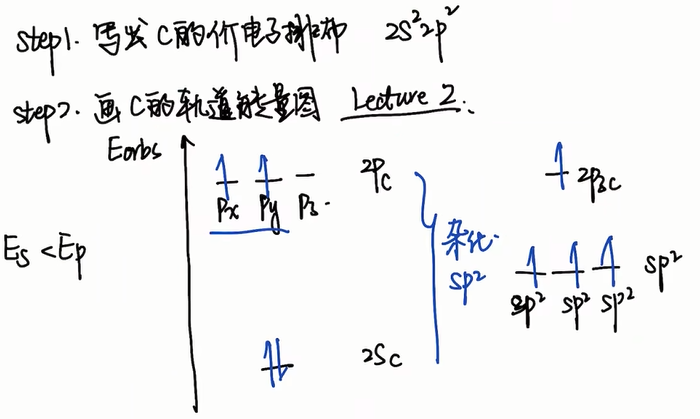 step1. 写出C的价电子排布 2s²2p²
step2. 画C的轨道能量图 Lecture 2.
Eorbs
2pc
2pzc
px py pz.
Es < Ep
杂化.
sp²
sp²
sp² sp² sp²
2sc